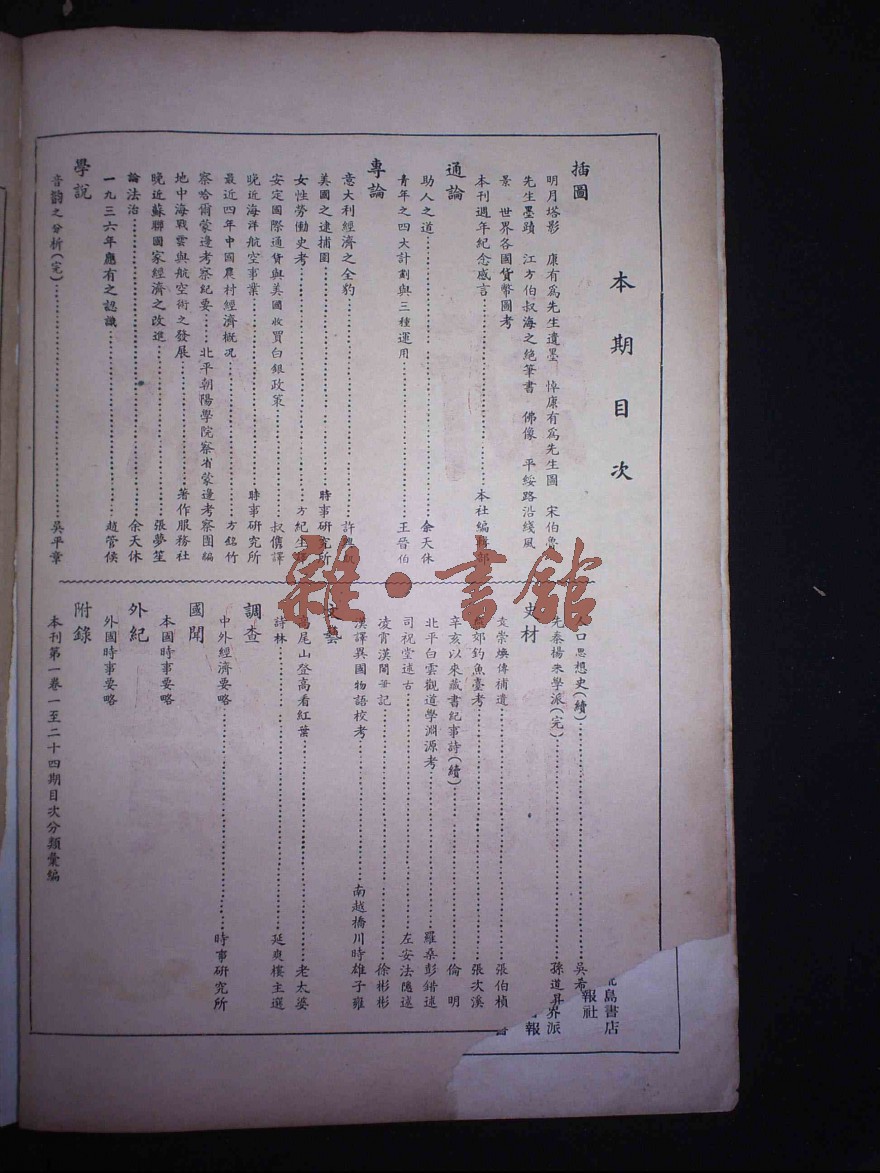 本期目次
插圖
明月塔影 康有為先生遺墨 悼康有為先生圖 宋伯魯
先生墨蹟 江方伯叔海之絶筆書 佛像 平綏路沿綫風
景 世界各國貨幣圖考
本刊週年紀念感言 本社編輯部
通論
助人之道 余天休
青年之四大計劃與三種運用 王晉伯
專論
意大利經濟之全豹 許
美國之逮捕團 時事研究所
女性勞働史考 方紀生
安定國際通貨與美國收買白銀政策 叔儁譯
晚近海洋航空事業 時事研究所
最近四年中國農村經濟概況 方銘竹
察哈爾蒙邊考察紀要 北平朝陽學院察省蒙邊考察團編
地中海戰雲與航空術之發展 著作服務社
晚近蘇聯國家經濟之改進 張夢笙
論法治 余天休
一九三六年應有之認識 趙管侯
學說
音韵之分析(完) 吳平章
人口思想史(續) 吳希
先秦楊朱學派(完) 孫道昇
史材
袁崇煥傳補遺 張伯楨
燕郊釣魚臺考 張次溪
辛亥以來藏書紀事詩(續) 倫明
北平白雲觀道學淵源考 羅桑彭錯述
司祝堂述古 左安法隱述
凌霄漢閣筆記 徐彬彬
漢譯異國物語校考 南越橋川時雄子雍
文藝
高尾山登高看紅葉 老太婆
詩林 延爽樓主選
調查
中外經濟要略 時事研究所
國聞
本國時事要略
外紀
外國時事要略
附錄
本刊第一卷一至二十四期目次分類彙編
島書店
報社
界派
報
雜·書館